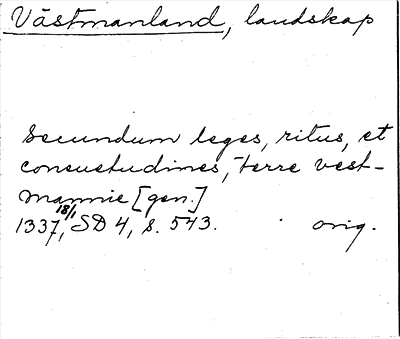 Västmanland, landskap
Secundum leges, ritus, et
consuetudines, terre vest-
mannie [gen.]
1337 18/1, SD 4, s. 543. orig.